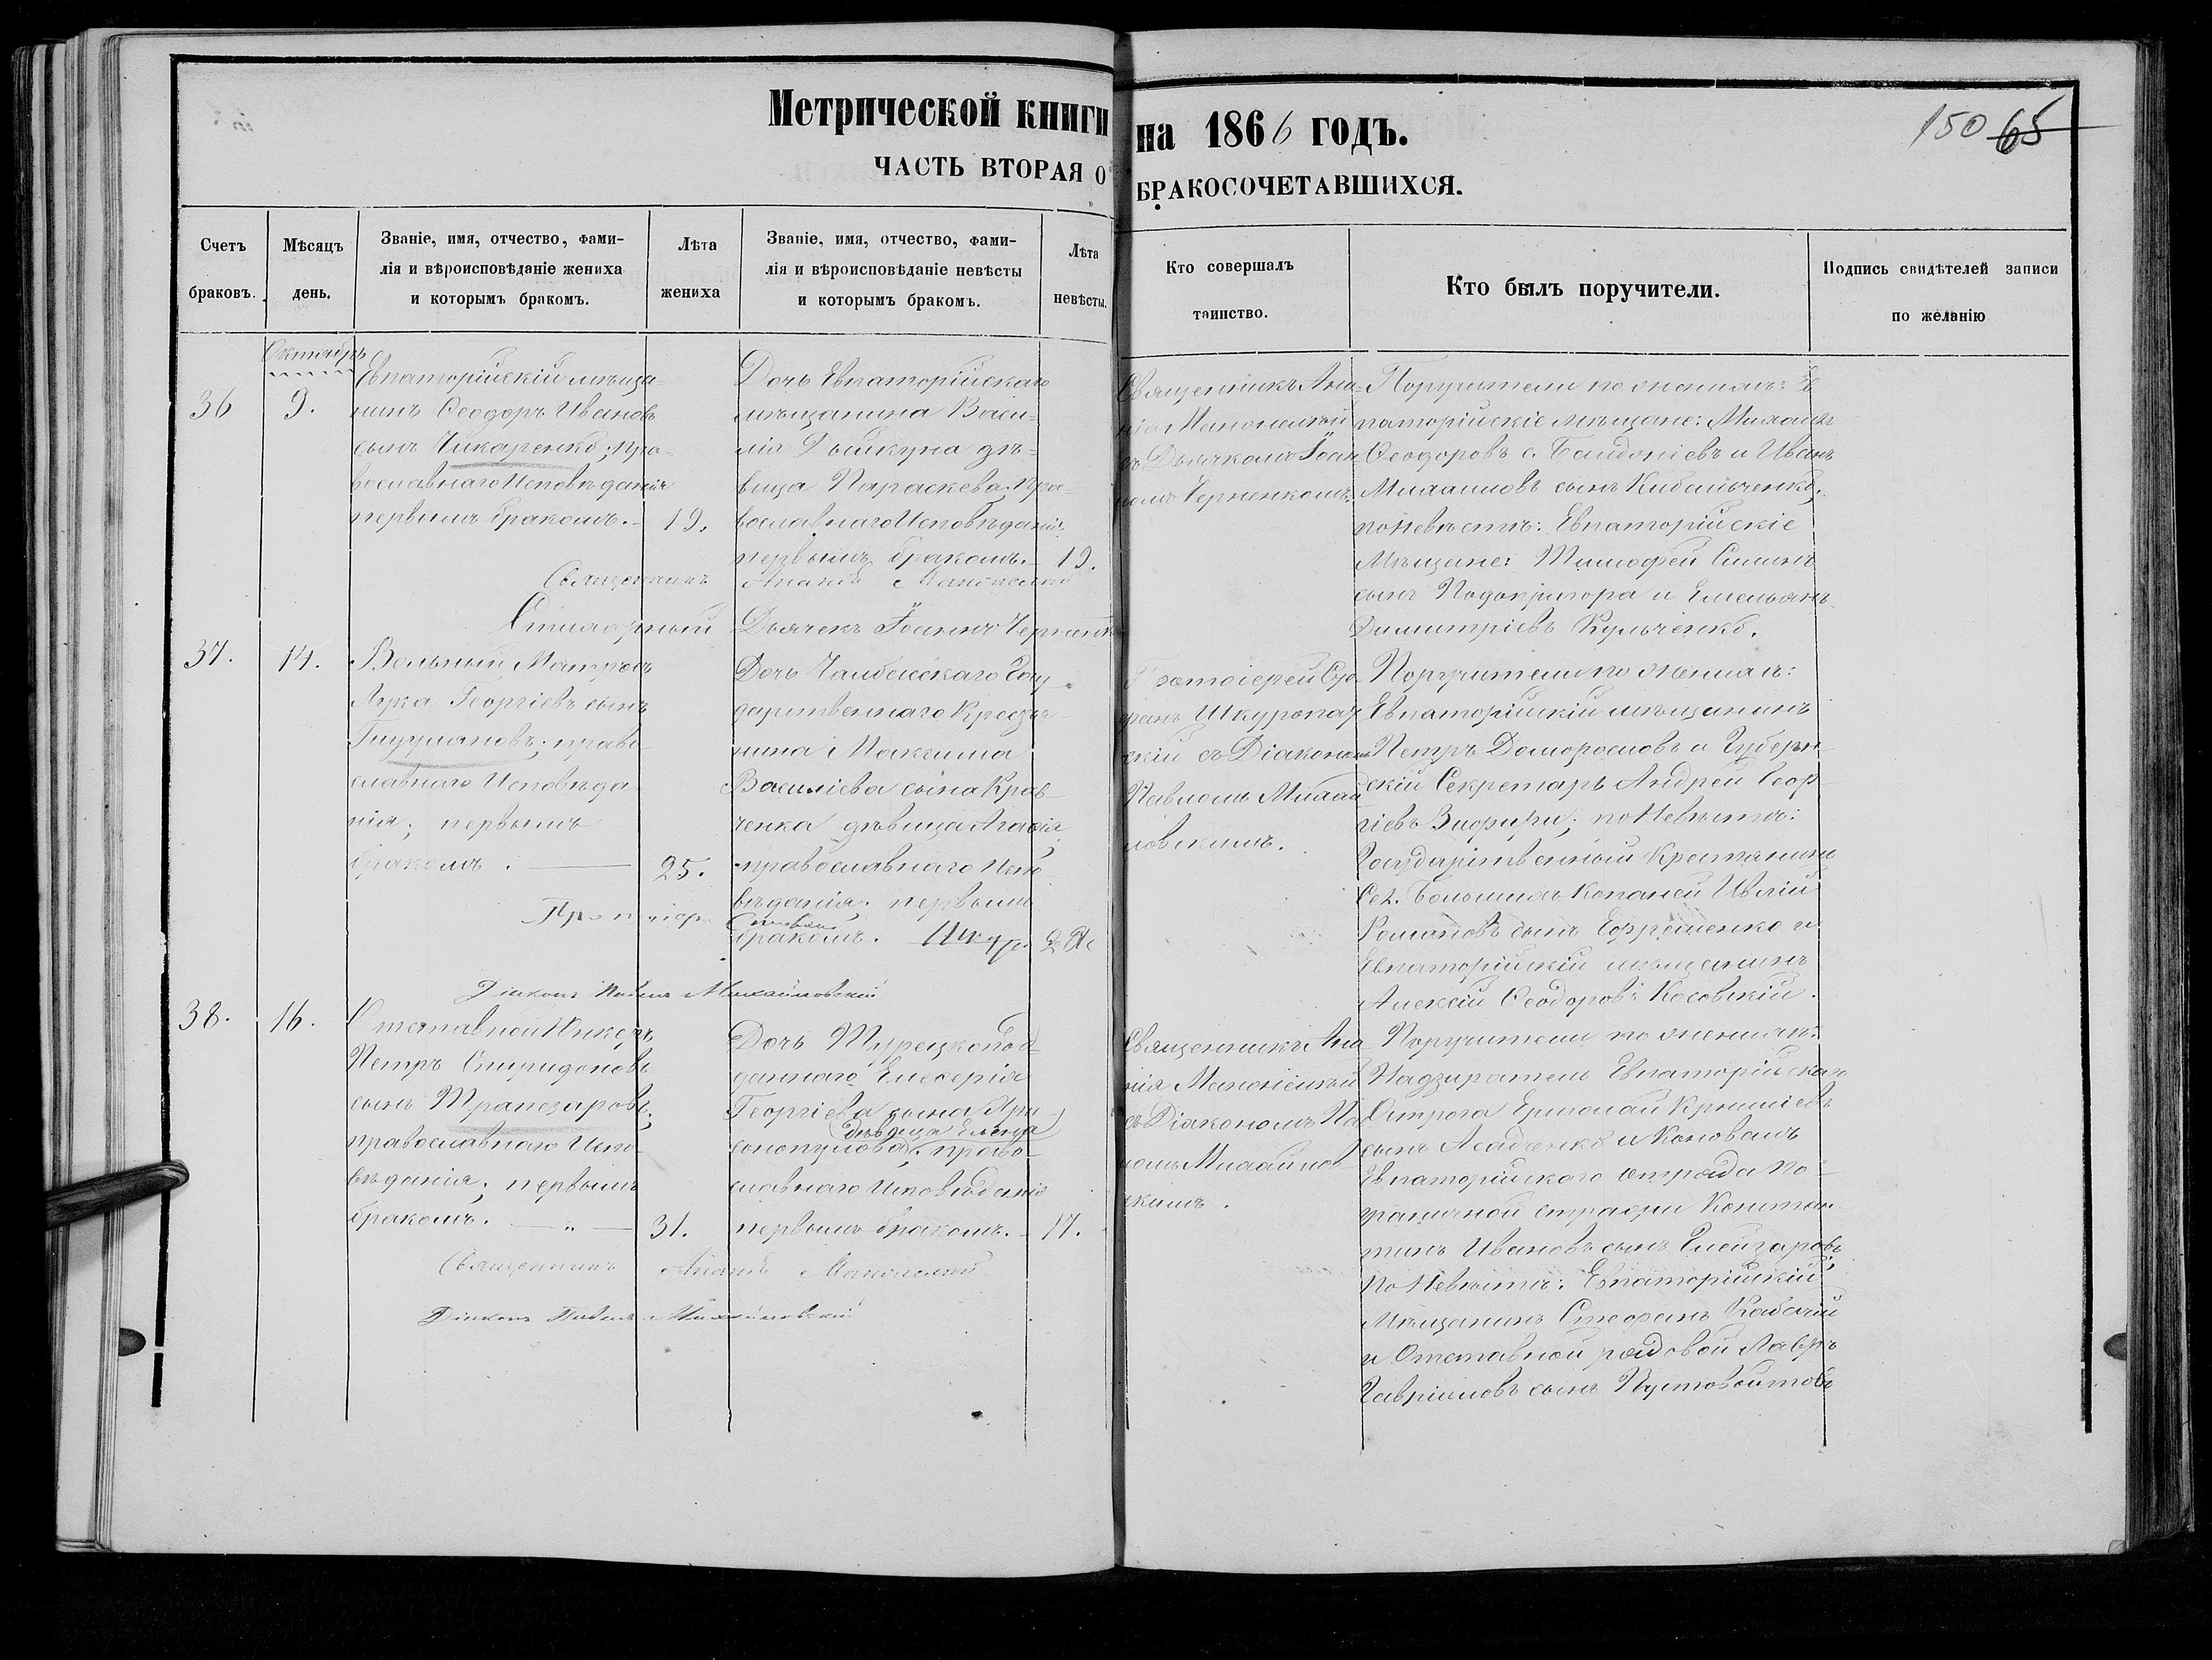 Метрической книги на 1866 годъ.
150 65
ЧАСТЬ ВТОРАЯ О БРАКОСОЧЕТАВШИХСЯ.
Счетъ браковъ.
Мѣсяцъ день.
Званіе, имя, отчество, фами-
лія и вѣроисповѣданіе жениха
и которымъ бракомъ.
Лѣта
жениха
Званіе, имя, отчество, фами-
лія и вѣроисповѣданіе невѣсты
и которымъ бракомъ.
Лѣта
невѣсты.
Кто совершалъ
таинство.
Кто былъ поручители.
Подпись свидѣтелей записи
по желанію
Октябрь
36
9.
Евпаторійскій мѣща-
нинъ Ѳеодоръ Ивановъ
сынъ Чикаренко; пра-
вославнаго Исповѣданія
первымъ бракомъ.
19.
Дочь Евпаторійскаго
мѣщанина Васи-
лія дѣ-
вица Параскева, Пра-
вославнаго Исповѣданія
первымъ бракомъ.
19.
Священникъ Ана-
нія
съ Дьячкомъ Іоан-
номъ Черненкомъ.
Поручители по женихѣ: Ев-
паторійскіе мѣщане: Михаилъ
Ѳеодоровъ с. и Иванъ
Михаиловъ сынъ Кибальченко;
по Невѣстѣ: Евпаторійскіе
Мѣщане: Тимофей
сынъ Подопригора и Емельянъ
Димитріевъ Кульченко.
Священникъ Ананія
Дьячекъ Іоаннъ Черненко
37.
14.
Вольный Матросъ
Лука Георгіевъ сынъ
право-
славнаго Исповѣда-
нія; первымъ
бракомъ.
25.
Дочь Государственнаго Крестья-
нина Максима
Василіева сына Крав-
ченка дѣвица Агафія;
православнаго Испо-
вѣданія. первымъ
бракомъ.
Протоіерей Сте-
фанъ Шкуропат-
скій съ Діакономъ
Павломъ Михай-
ловскимъ.
Поручители по женихѣ:
Евпаторійскій мѣщанинъ
Петръ Доморословъ и Губерн-
скій Секретарь Андрей Геор-
гіевъ по Невѣстѣ:
Государственный Крестьянинъ
Сел. Большихъ Копаней
Романовъ сынъ Ефременко и
Евпаторійскій мѣщанинъ
Алексій Ѳеодоровъ Косовскій.
Діаконъ Павелъ Михайловскій
38.
16.
Отставной Юнкеръ
Петръ Спиридоновъ
сынъ Трапезаровъ;
православнаго Испо-
вѣданія; первымъ
бракомъ.
31.
Дочь Турецкопод-
даннаго
Георгіева сына
дѣвица Елена
право-
славнаго Исповѣданія
первымъ бракомъ.
17.
Священникъ Ана-
нія
съ Діакономъ Пав-
ломъ Михайлов-
скимъ.
Поручители по женихѣ:
Надзиратель Евпаторійскаго
Острога Ермолай
сынъ и Коновалъ
Евпаторійскаго отряда По-
граничной стражи Констан-
тинъ Ивановъ сынъ
по Невѣстѣ: Евпаторійскій
Мѣщанинъ Стефанъ
и Отставной рядовой Лавръ
Гавріиловъ сынъ Пустовойтовъ
Священникъ Ананія
Діаконъ Павелъ Михайловскій